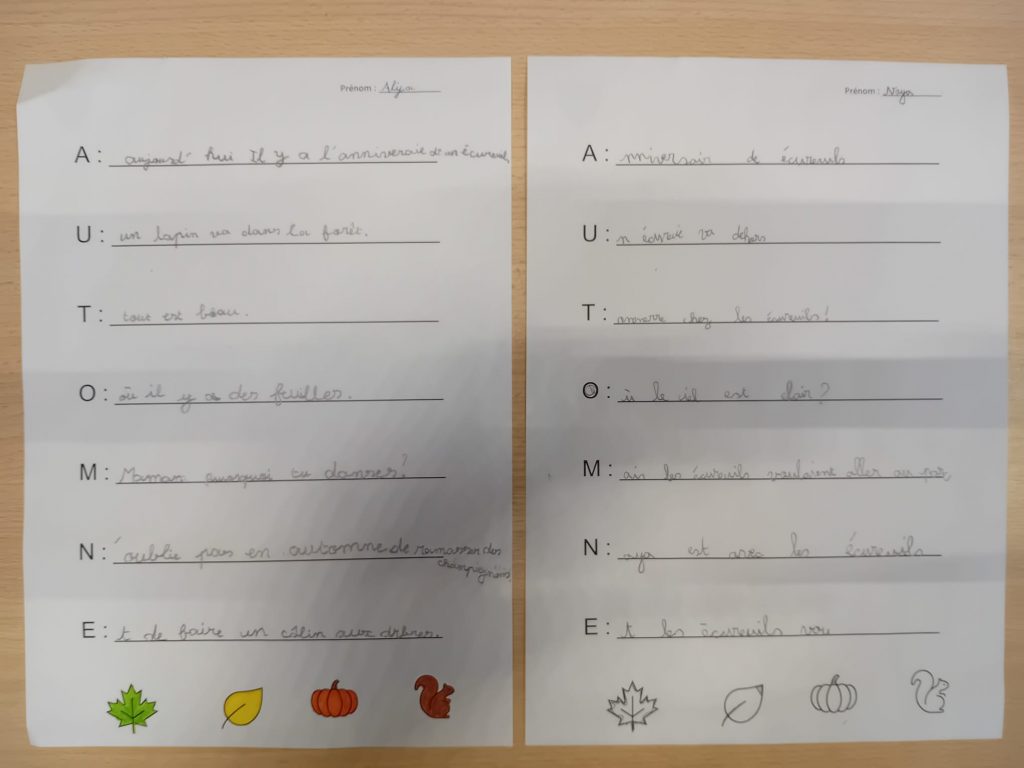 Prénom : Aliya
A : aujourd' hui Il y a l'anniveraie de un écureuil
U : un lapin va dans la forêt.
T : tout est bôau.
O : où il y a des feuilles.
M : Maman pourquoi tu danses?
N : 'oublie pas en automne de ramasser des
champignons
E : t de faire un câlin aux arbres.
Prénom : Naya
A : nniversair de écureuils
U : n va dehors
T : chez les écureuils!
O : ù le ciel est clair?
M : ais les écureuils voulaient aller au
N : aya est avec les écureuils
E : t les écureuils vou